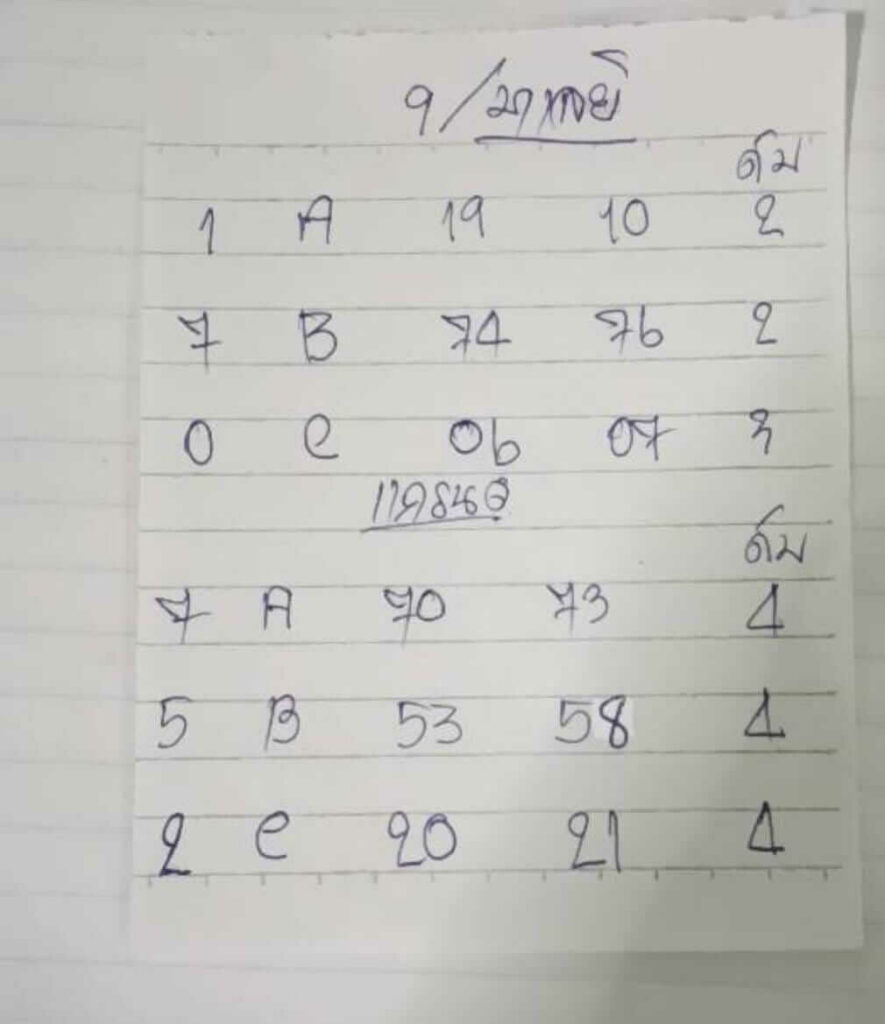 9/มาเลย์
ดับ
1 A 19 10 2
7 B 74 76 2
0 C 06 07 3
ดับ
7 A 70 73 4
5 B 53 58 4
2 C 20 21 4